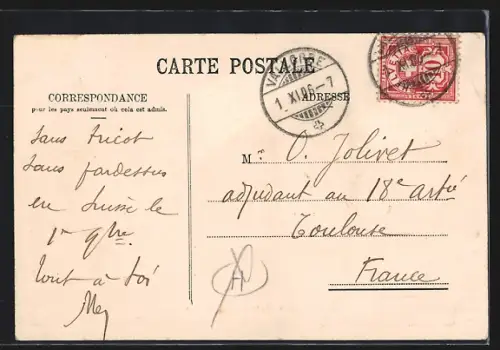 CARTE POSTALE
CORRESPONDANCE
pour les pays seulement où cela est admis.
ADRESSE
VALLORBE
1. XI.06-7
HELVETIA
10
Sans tricot
Sans pardessus
en Suisse le
1er 9bre
Tout à toi
Mr O. Jolivet
adjudant au 18e artie
Toulouse
France